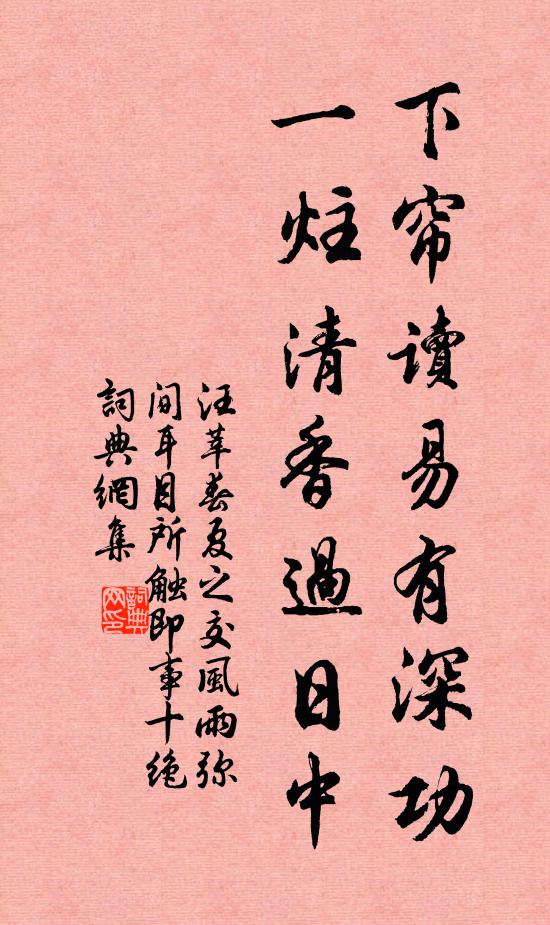 下帘讀易有深功
一炷清香過日中
汪莘春夏之交風雨弥
间耳目所触即事十绝
詞典網集
詞典网印